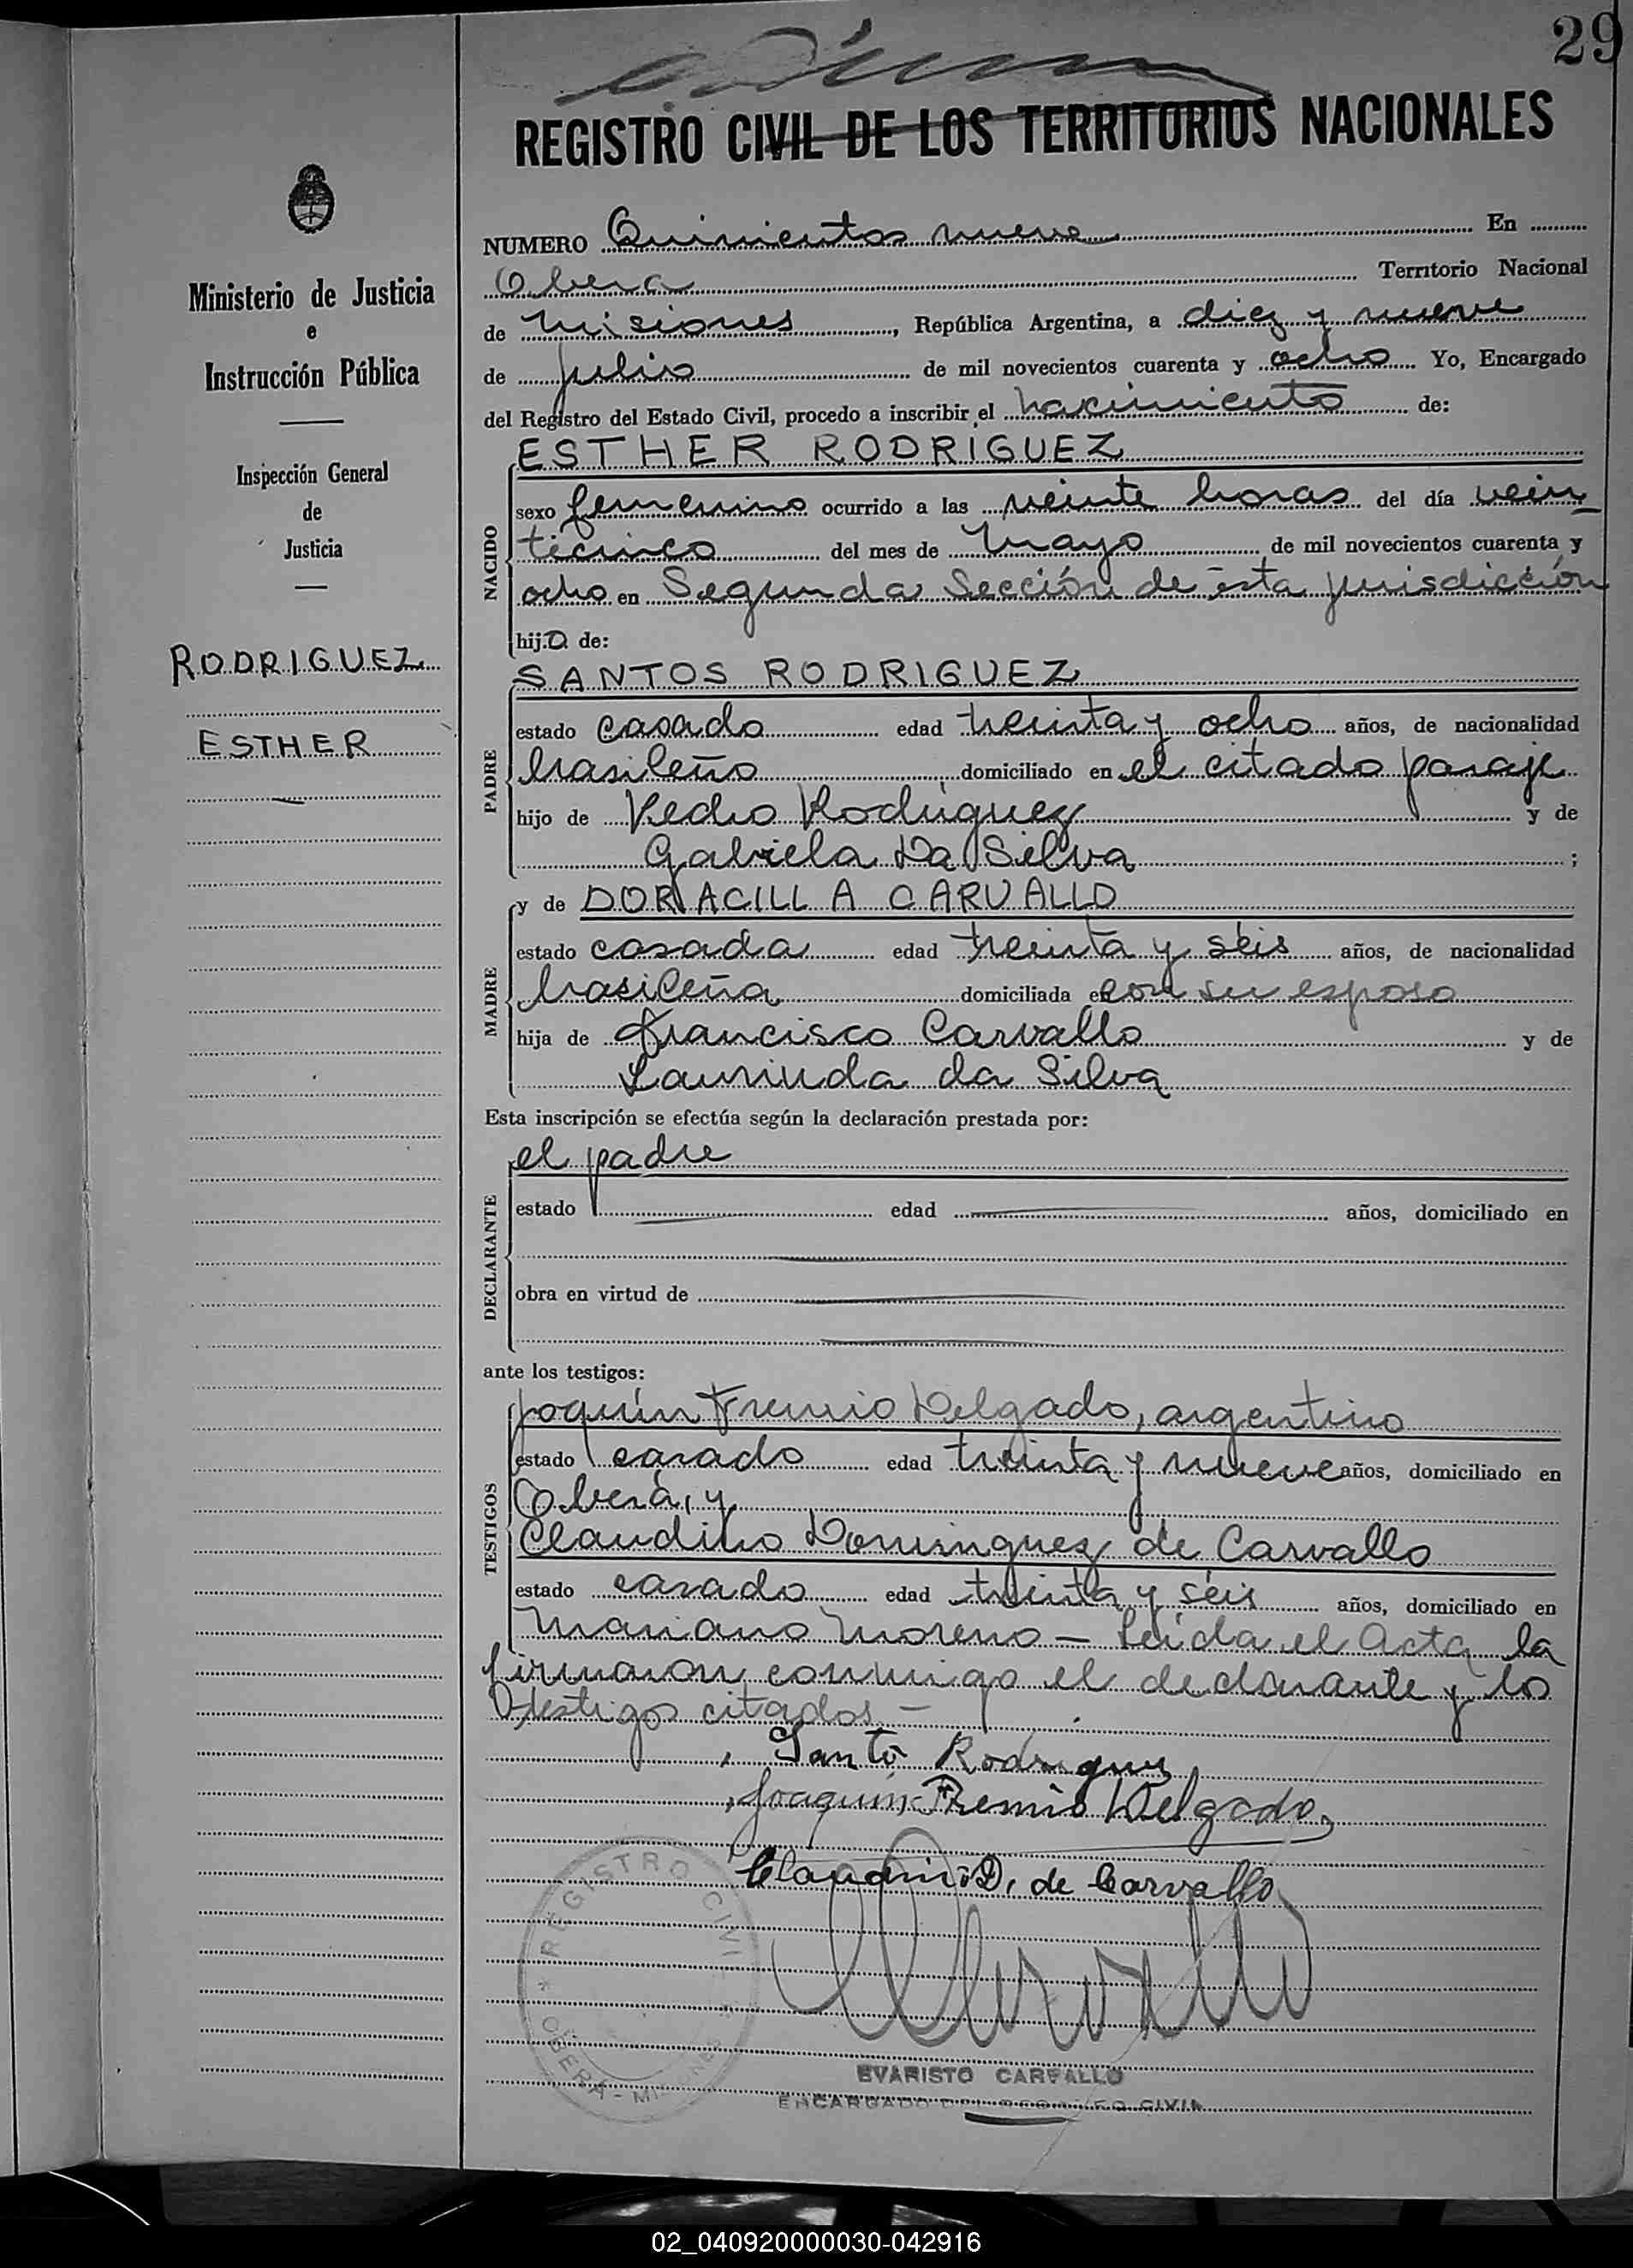 29
REGISTRO CIVIL DE LOS TERRITORIOS NACIONALES
Ministerio de Justicia
e
Instrucción Pública
Inspección General
de
Justicia
RODRIGUEZ
ESTHER
NUMERO Quinientos nueve En
Obera Territorio Nacional
de Misiones, República Argentina, a diez y nueve
de julio de mil novecientos cuarenta y ocho Yo, Encargado
del Registro del Estado Civil, procedo a inscribir el nacimiento de:
NACIDO
ESTHER RODRIGUEZ
sexo femenino ocurrido a las veinte horas del día vein
ticinco del mes de Mayo de mil novecientos cuarenta y
ocho en Segunda Sección de ésta jurisdicción
hija de:
PADRE
SANTOS RODRIGUEZ
estado casado edad treinta y ocho años, de nacionalidad
brasileño domiciliado en el citado paraje
hijo de Pedro Rodriguez y de
Gabriela Da Silva ;
MADRE
y de DORACILLA CARVALLO
estado casada edad treinta y séis años, de nacionalidad
brasileña domiciliada en con su esposo
hija de Francisco Carvallo y de
Laurinda da Silva
Esta inscripción se efectúa según la declaración prestada por:
DECLARANTE
el padre
estado edad años, domiciliado en
obra en virtud de
ante los testigos:
TESTIGOS
Joaquín Fremio Delgado, argentino
estado casado edad treinta y nueve años, domiciliado en
Oberá, y
Claudino Dominguez de Carvallo
estado casado edad treinta y séis años, domiciliado en
Mariano Moreno — Leída el Acta la
firmaron conmigo el declarante y lo
testigos citados —
Santo Rodriguez
Joaquín Fremio Delgado
Claudino D. de Carvallo
REGISTRO CIVIL
* OBERÁ - MISIONES
EVARISTO CARVALLO
ENCARGADO DEL REGISTRO CIVIL
02_040920000030-042916